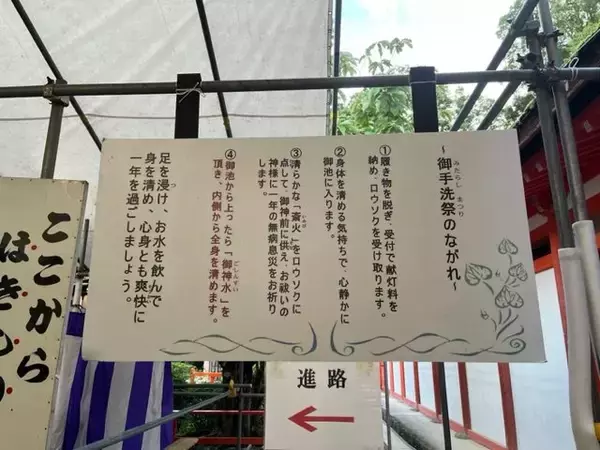 ～御手洗祭のながれ～
みたらし まつり
①履き物を脱ぎ、受付で献灯料を
納め、ロウソクを受け取ります。
②身体を清める気持ちで、心静かに
御池に入ります。
③清らかな「斎火」をロウソクに
点して、御神前に供え、お祓いの
神様に一年の無病息災をお祈り
します。
④御池から上ったら「御神水」を
ごしんすい
頂き、内側から全身を清めます。
足を浸け、お水を飲んで
つ
身を清め、心身とも爽快に
一年を過ごしましょう。
ここから
進路